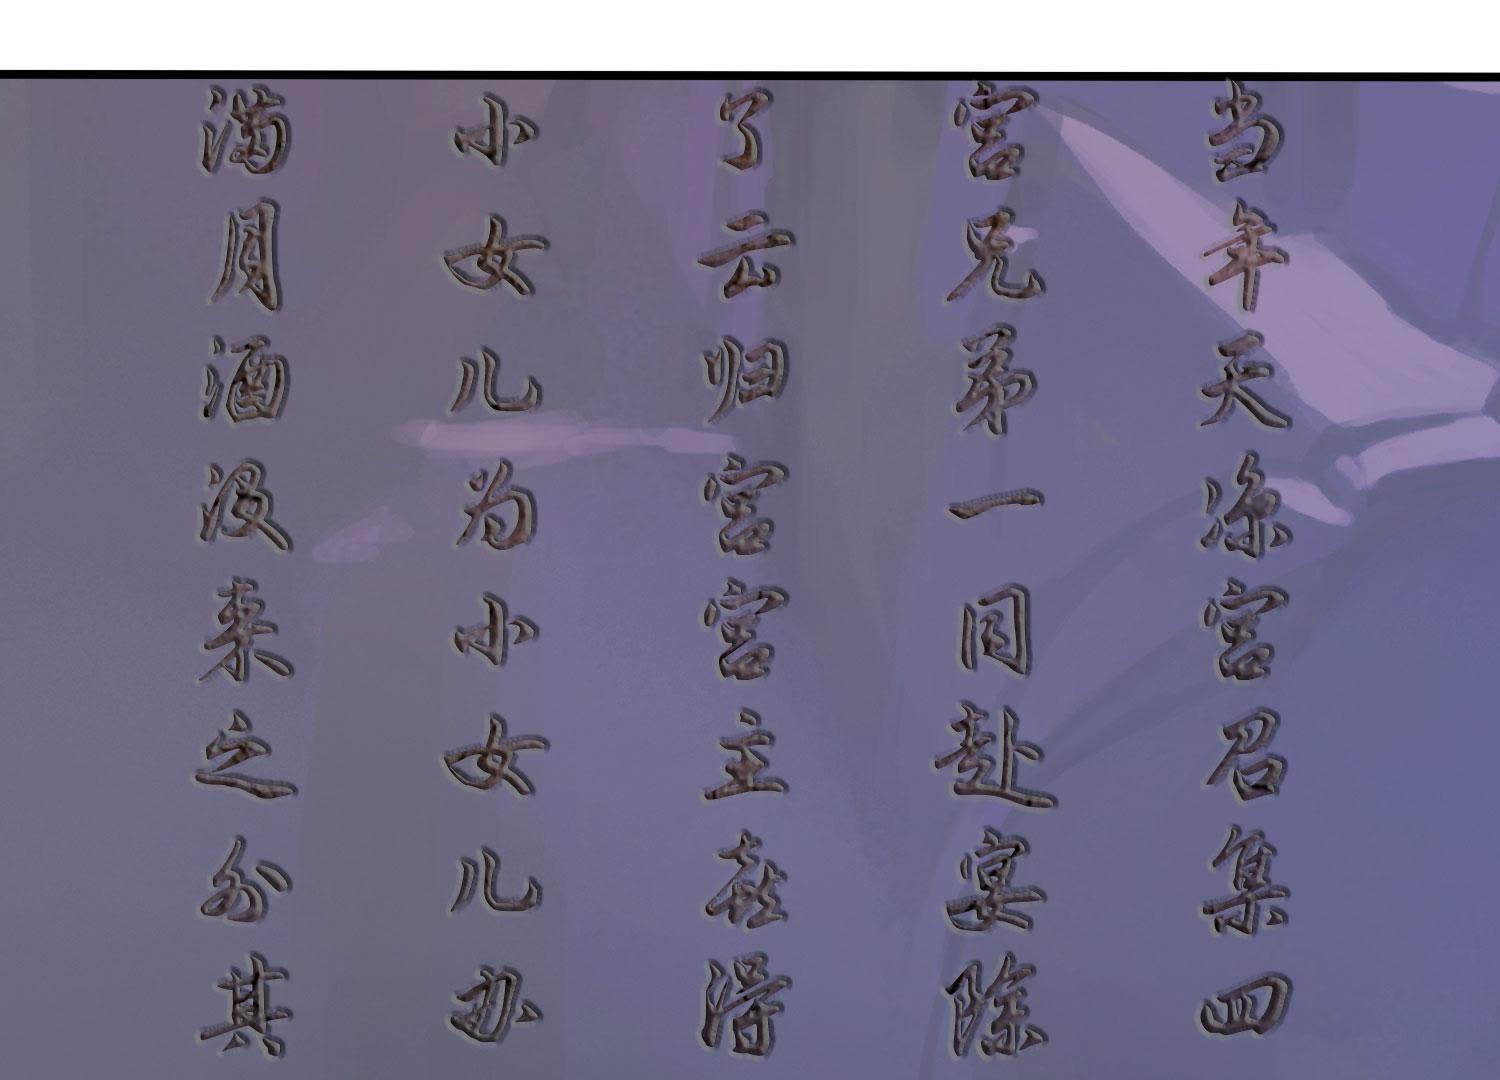 当年天源宫召集四
宫兄弟一同赴宴除
了云归宫宫主喜得
小女儿为小女儿办
满月酒没来之外其